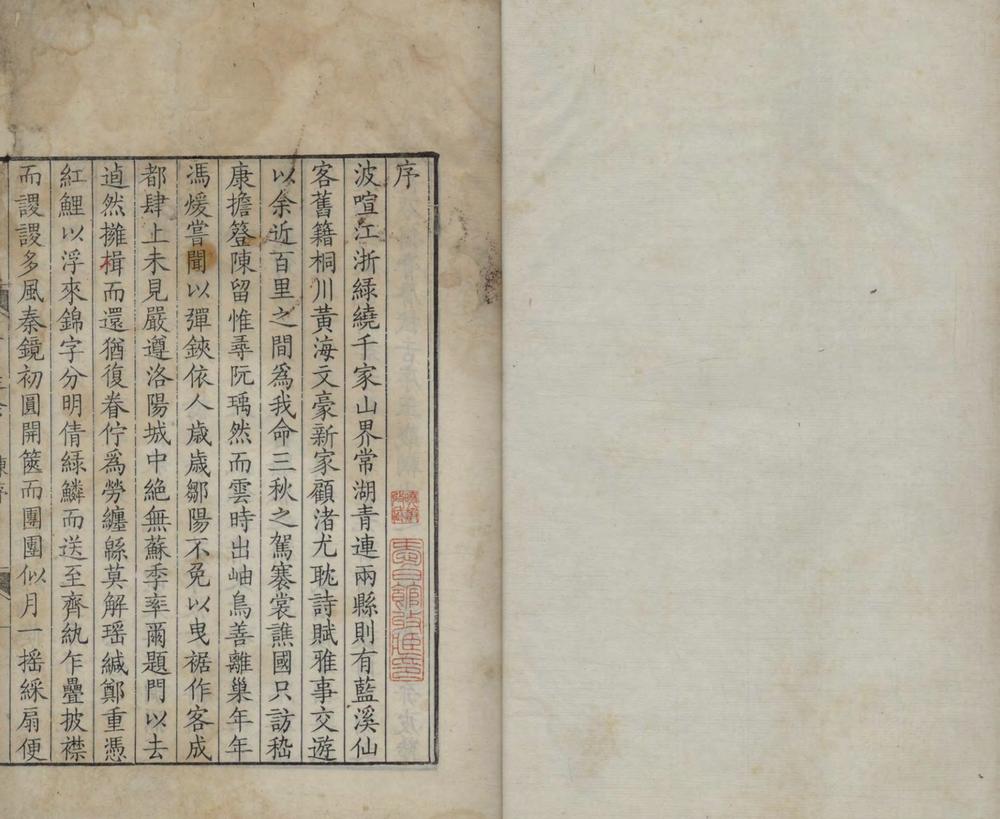 序
波喧江浙緑繞千家山界常湖青連兩縣則有藍溪仙
客舊籍桐川黃海文豪新家顧渚尤耽詩賦雅事交遊
以余近百里之間為我命三秋之駕褰裳譙國只訪嵇
康擔簦陳留惟尋阮瑀然而雲時出岫鳥善離巢年年
馮煖嘗聞以彈鋏依人歲歲鄒陽不免以曳裾作客成
都肆上未見嚴遵洛陽城中絶無蘇季率爾題門以去
逌然擁楫而還猶復眷佇為勞纏緜莫解瑶緘鄭重憑
紅鯉以浮來錦字分明倩緑鱗而送至齊紈乍疊披襟
而謖謖多風秦鏡初圓開篋而團團似月一摇綵扇便